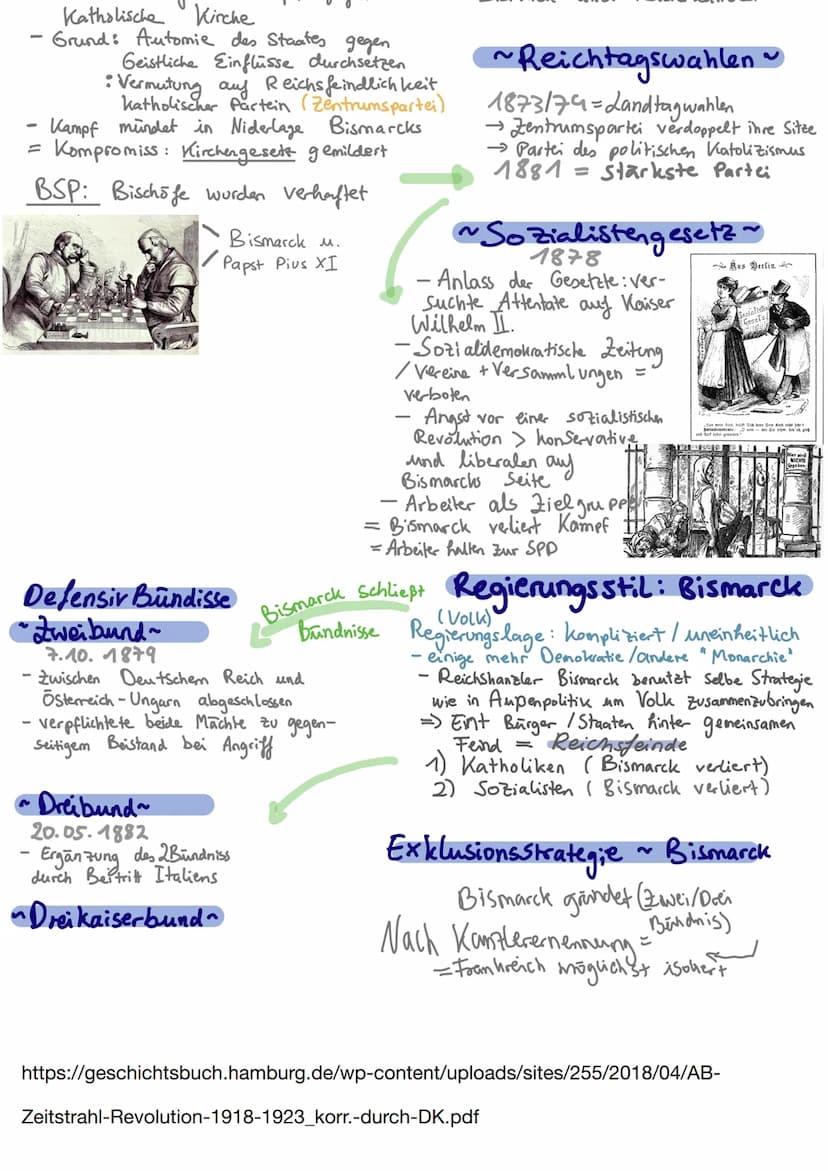 Katholische Kirche
- Grund: Automie des Staates gegen
Geistliche Einflüsse durchsetzen
: Vermutung auf Reichsfeindlichkeit
katholischer Partein (Zentrumspartei)
- Kampf mündet in Niderlage Bismarcks
= Kompromiss: Kirchengesetz gemildert
BSP: Bischöfe wurden verhaftet
Bismarck u.
Papst Pius XI
~Reichtagswahlen~
1873/74 = Landtagwahlen
→ Zentrumspartei verdoppelt ihre Sitze
→ Partei des politischen Katolizismus
1881 = Stärkste Partei
~Sozialistengesetz~
1878
- Anlass der Gesetzte: ver-
suchte Attentate auf Kaiser
Wilhelm II.
- Sozialdemokratische Zeitung
/ Vereine + Versammlungen =
verboten
- Angst vor einer sozialistischen
Revolution > konservative
und liberalen auf
Bismarcks Seite
- Arbeiter als Zielgruppe
= Bismarck verliert Kampf
= Arbeiter halten zur SPD
Aus Berlin.
Defensiv Bündisse
~Zweibund~
7.10. 1879
- Zwischen Deutschem Reich und
Österreich-Ungarn abgeschlossen
- verpflichtete beide Mächte zu gegen-
seitigem Beistand bei Angriff
Bismarck schließt
bündnisse
~Dreibund~
20.05.1882
- Ergänzung des 2Bündniss
durch Beitritt Italiens
~Dreikaiserbund~
Regierungsstil: Bismarck
(Volk)
Regierungslage: kompliziert / uneinheitlich
- einige mehr Demokratie / andere "Monarchie"
- Reichskanzler Bismarck benutzt selbe Strategie
wie in Außenpolitik um Volk zusammenzubringen
=> Eint Bürger / Staaten hinter gemeinsamen
Feind = Reichsfeinde
1) Katholiken (Bismarck verliert)
2) Sozialisten (Bismarck verliert)
Exklusionsstrategie ~ Bismarck
Bismarck gründet (Zwei/Drei
Bündnis)
Nach Kanzlerernennung =
= Frankreich möglichst isoliert
https://geschichtsbuch.hamburg.de/wp-content/uploads/sites/255/2018/04/AB-
Zeitstrahl-Revolution-1918-1923_korr.-durch-DK.pdf